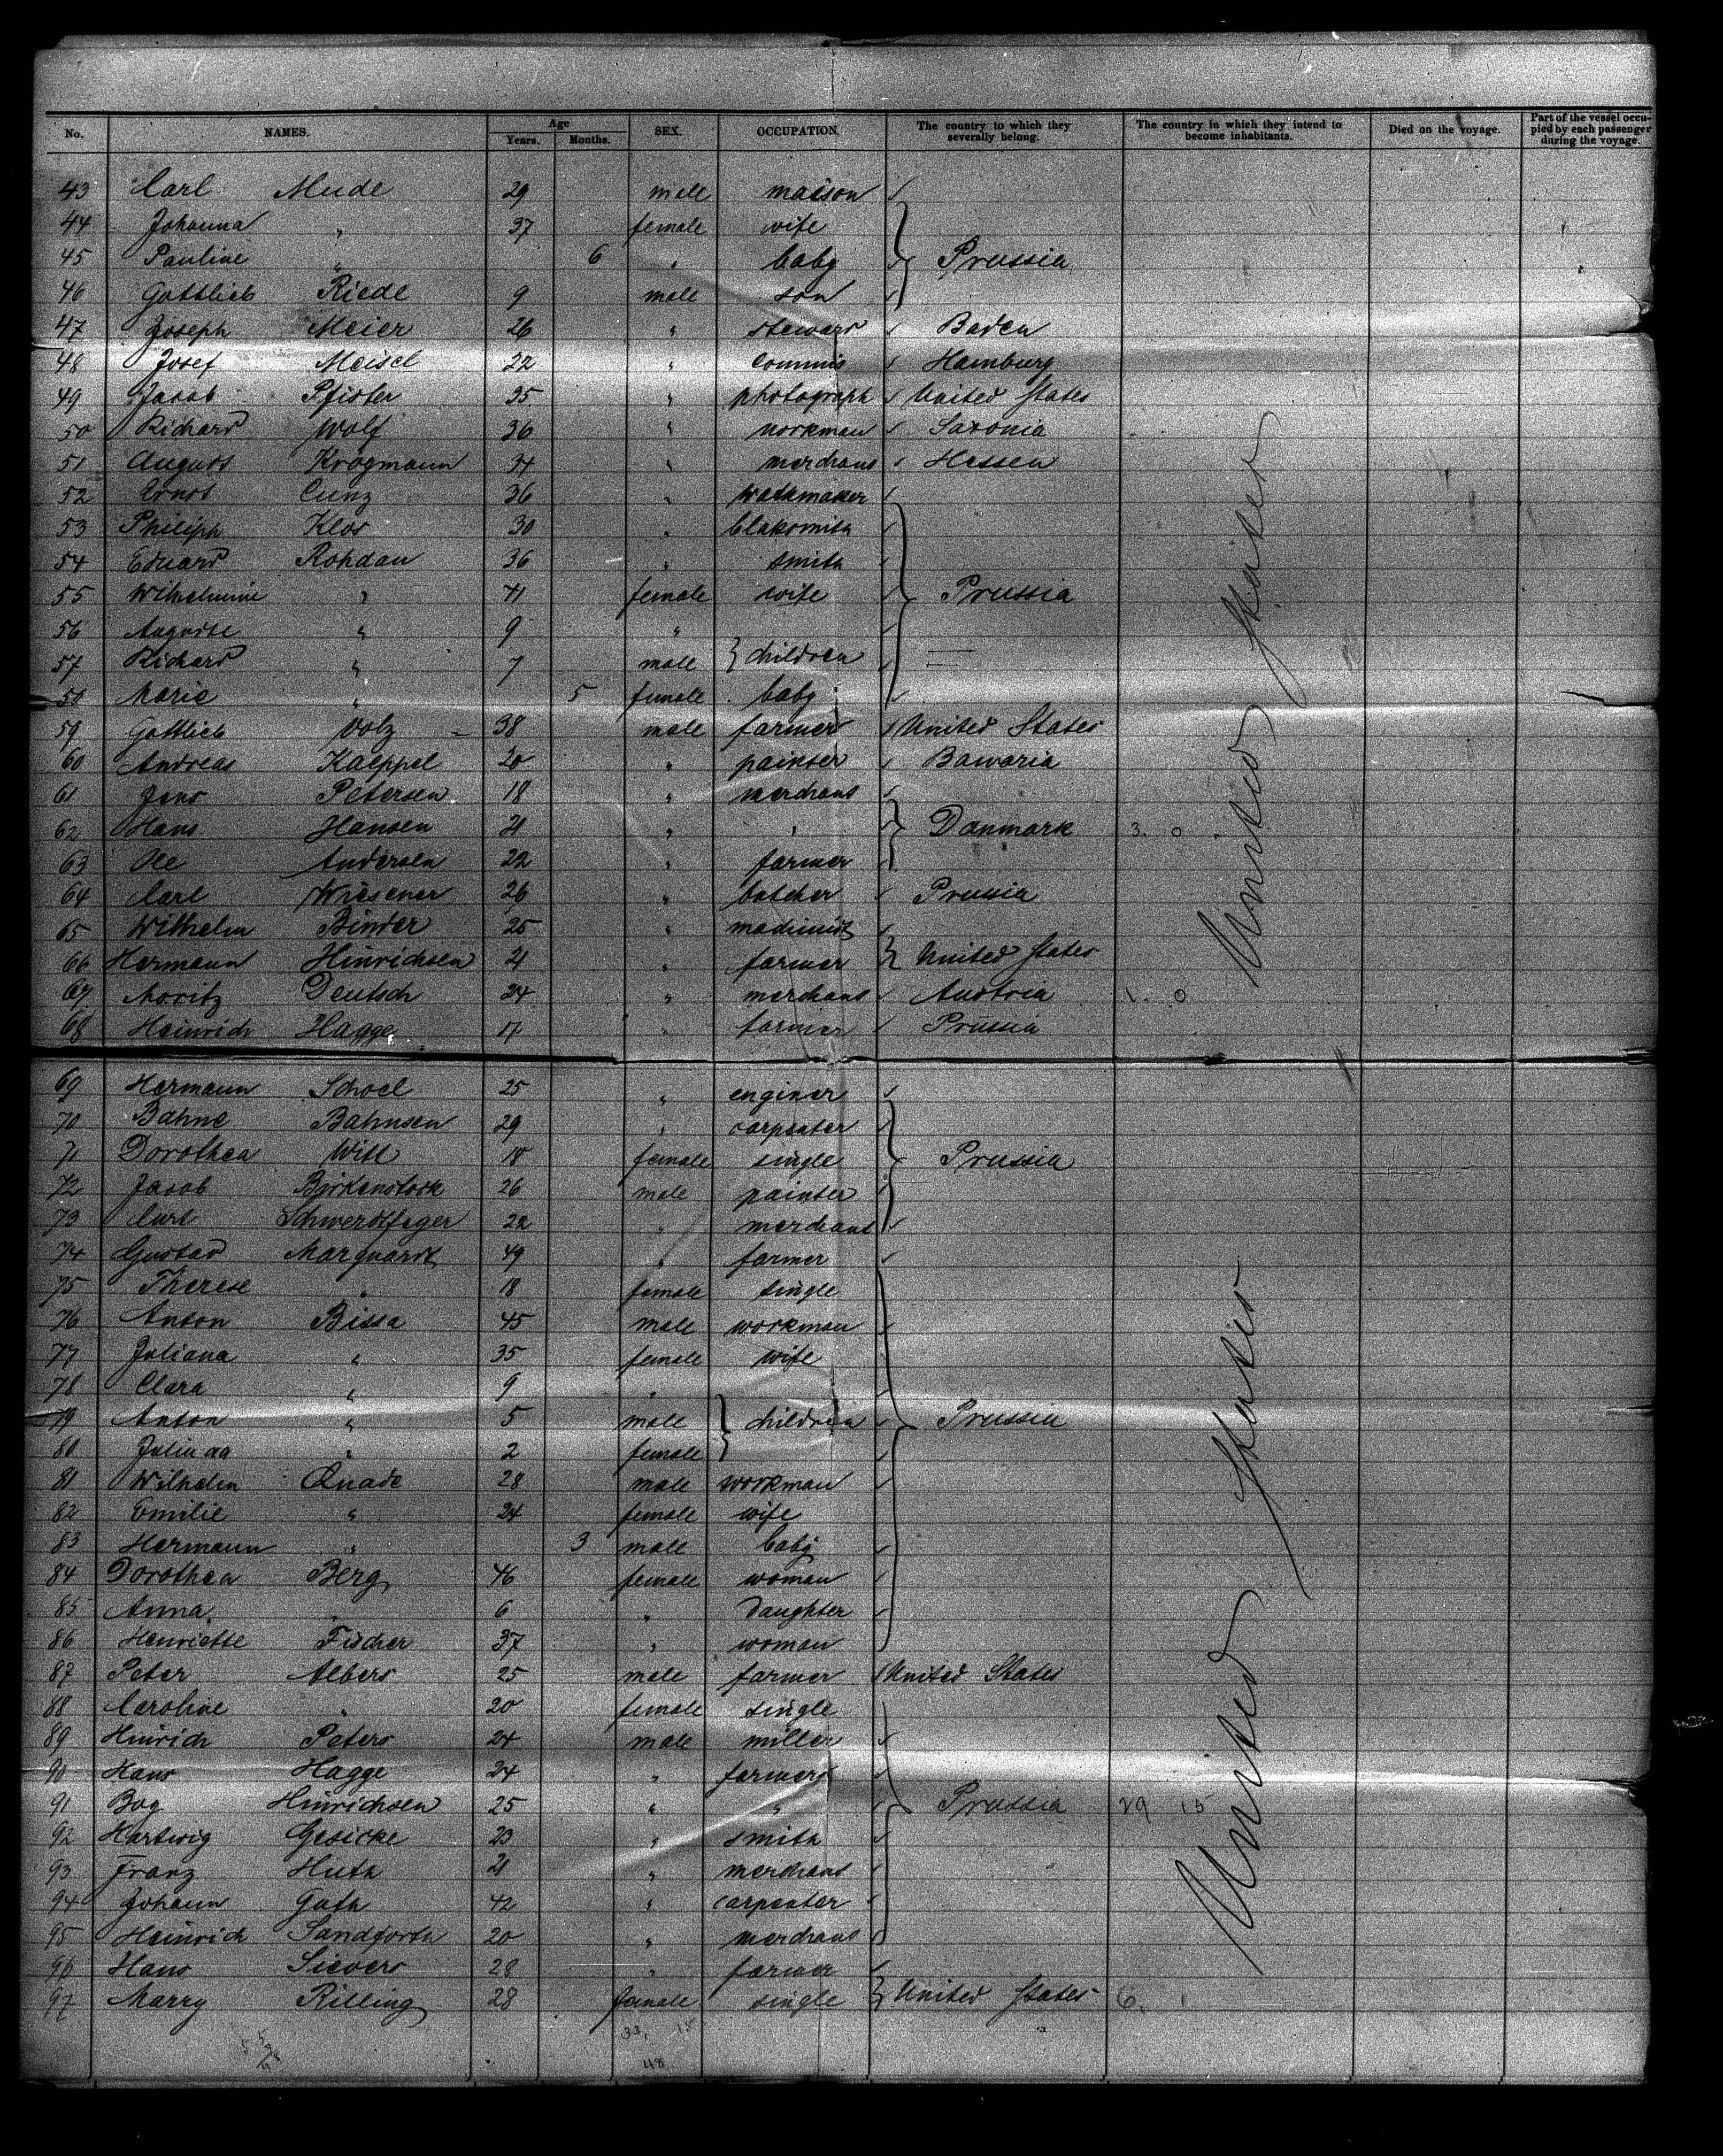 No. NAMES. Age Years. Months. SEX. OCCUPATION. The country to which they severally belong. The country in which they intend to become inhabitants. Died on the voyage. Part of the vessel occupied by each passenger during the voyage.
43 Carl Mude 29 male maison
44 Johanna " 37 female wife
45 Pauline " 6 " baby Prussia
46 Gottlieb Riede 9 male son
47 Joseph Meier 26 " steward Baden
48 Josef Meisel 22 " commis Hamburg
49 Jacob Pfister 35 " photograph United States
50 Richard Wolf 36 " workman Saxonia
51 August Krogmann 34 " merchant Hessen
52 Ernst Cunz 36 " watkmaker
53 Philipp Klos 30 " blaksmith
54 Eduard Rohdau 36 " smith
55 Wilhelmine " 41 female wife Prussia
56 Auguste " 9 "
57 Richard " 7 male } children
58 Marie " 5 female baby
59 Gottlieb Volz 38 male farmer United States
60 Andreas Kaeppel 20 " painter Bawaria
61 Jens Petersen 18 " merchant
62 Hans Hansen 21 " " Danmark 3. 0
63 Ole Andersen 22 " farmer
64 Carl Wiesener 26 " butcher Prussia
65 Wilhelm Binder 25 " machinist
66 Hermann Hinrichsen 21 " farmer United States
67 Moritz Deutsch 24 " merchant Austria 1. 0
68 Heinrich Hagge 17 " farmer Prussia
United States
69 Hermann Schoel 25 " enginer
70 Bahne Bahnsen 29 " carpenter
71 Dorothea Witt 18 female single Prussia
72 Jacob Birkenstock 26 male painter
73 Carl Schwerdtfeger 22 " merchant
74 Gustav Marquardt 49 " farmer
75 Therese " 18 female single
76 Anton Bissa 45 male workman
77 Juliana " 35 female wife
78 Clara " 9 "
79 Anton " 5 male } children Prussia
80 Julianna " 2 female
81 Wilhelm Quade 28 male workman
82 Emilie " 24 female wife
83 Hermann " 3 male baby
84 Dorothea Berg 46 female woman
85 Anna " 6 " daughter
86 Henriette Fischer 37 " woman
87 Peter Albers 25 male farmer United States
88 Caroline " 20 female single
89 Hinrich Peters 24 male miller
90 Hans Hagge 24 " farmer
91 Boy Hinrichsen 25 " " Prussia 29 15
92 Hartwig Gesicke 23 " smith
93 Franz Huth 21 " merchant
94 Johann Guth 42 " carpenter
95 Heinrich Sandforth 20 " merchant
96 Hans Sievers 28 " farmer
97 Marry Rilling 28 female single United States 6. 1
United States
33. 15
48